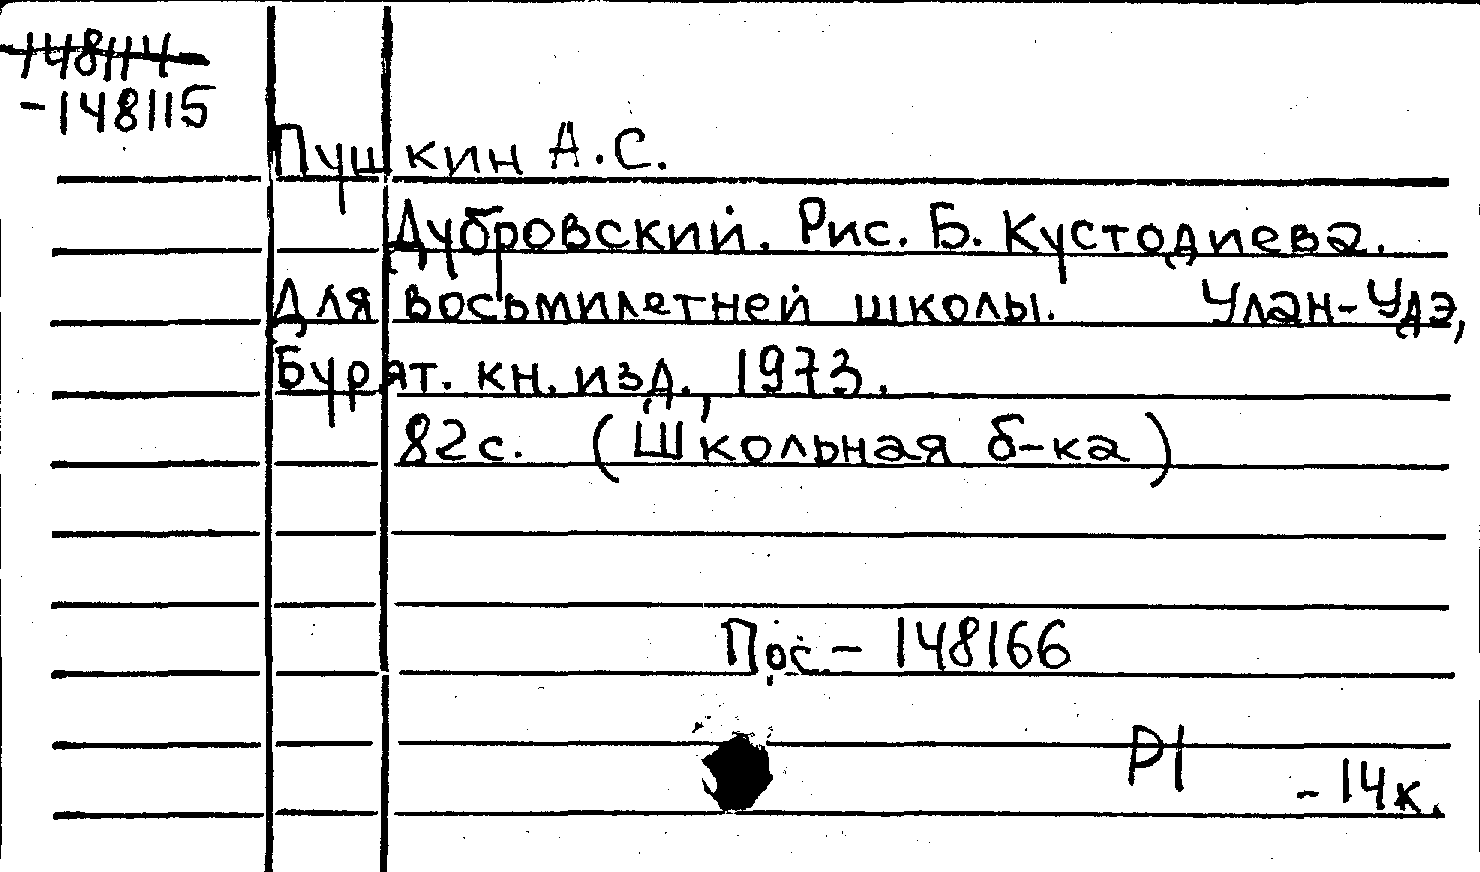 148114
-148115
Пушкин А.С.
Дубровский. Рис. Б. Кустодиева.
Для восьмилетней школы. Улан-Удэ,
Бурят. кн. изд., 1973.
82с. (Школьная б-ка)
Пос. - 148166
Р1
- 14к.